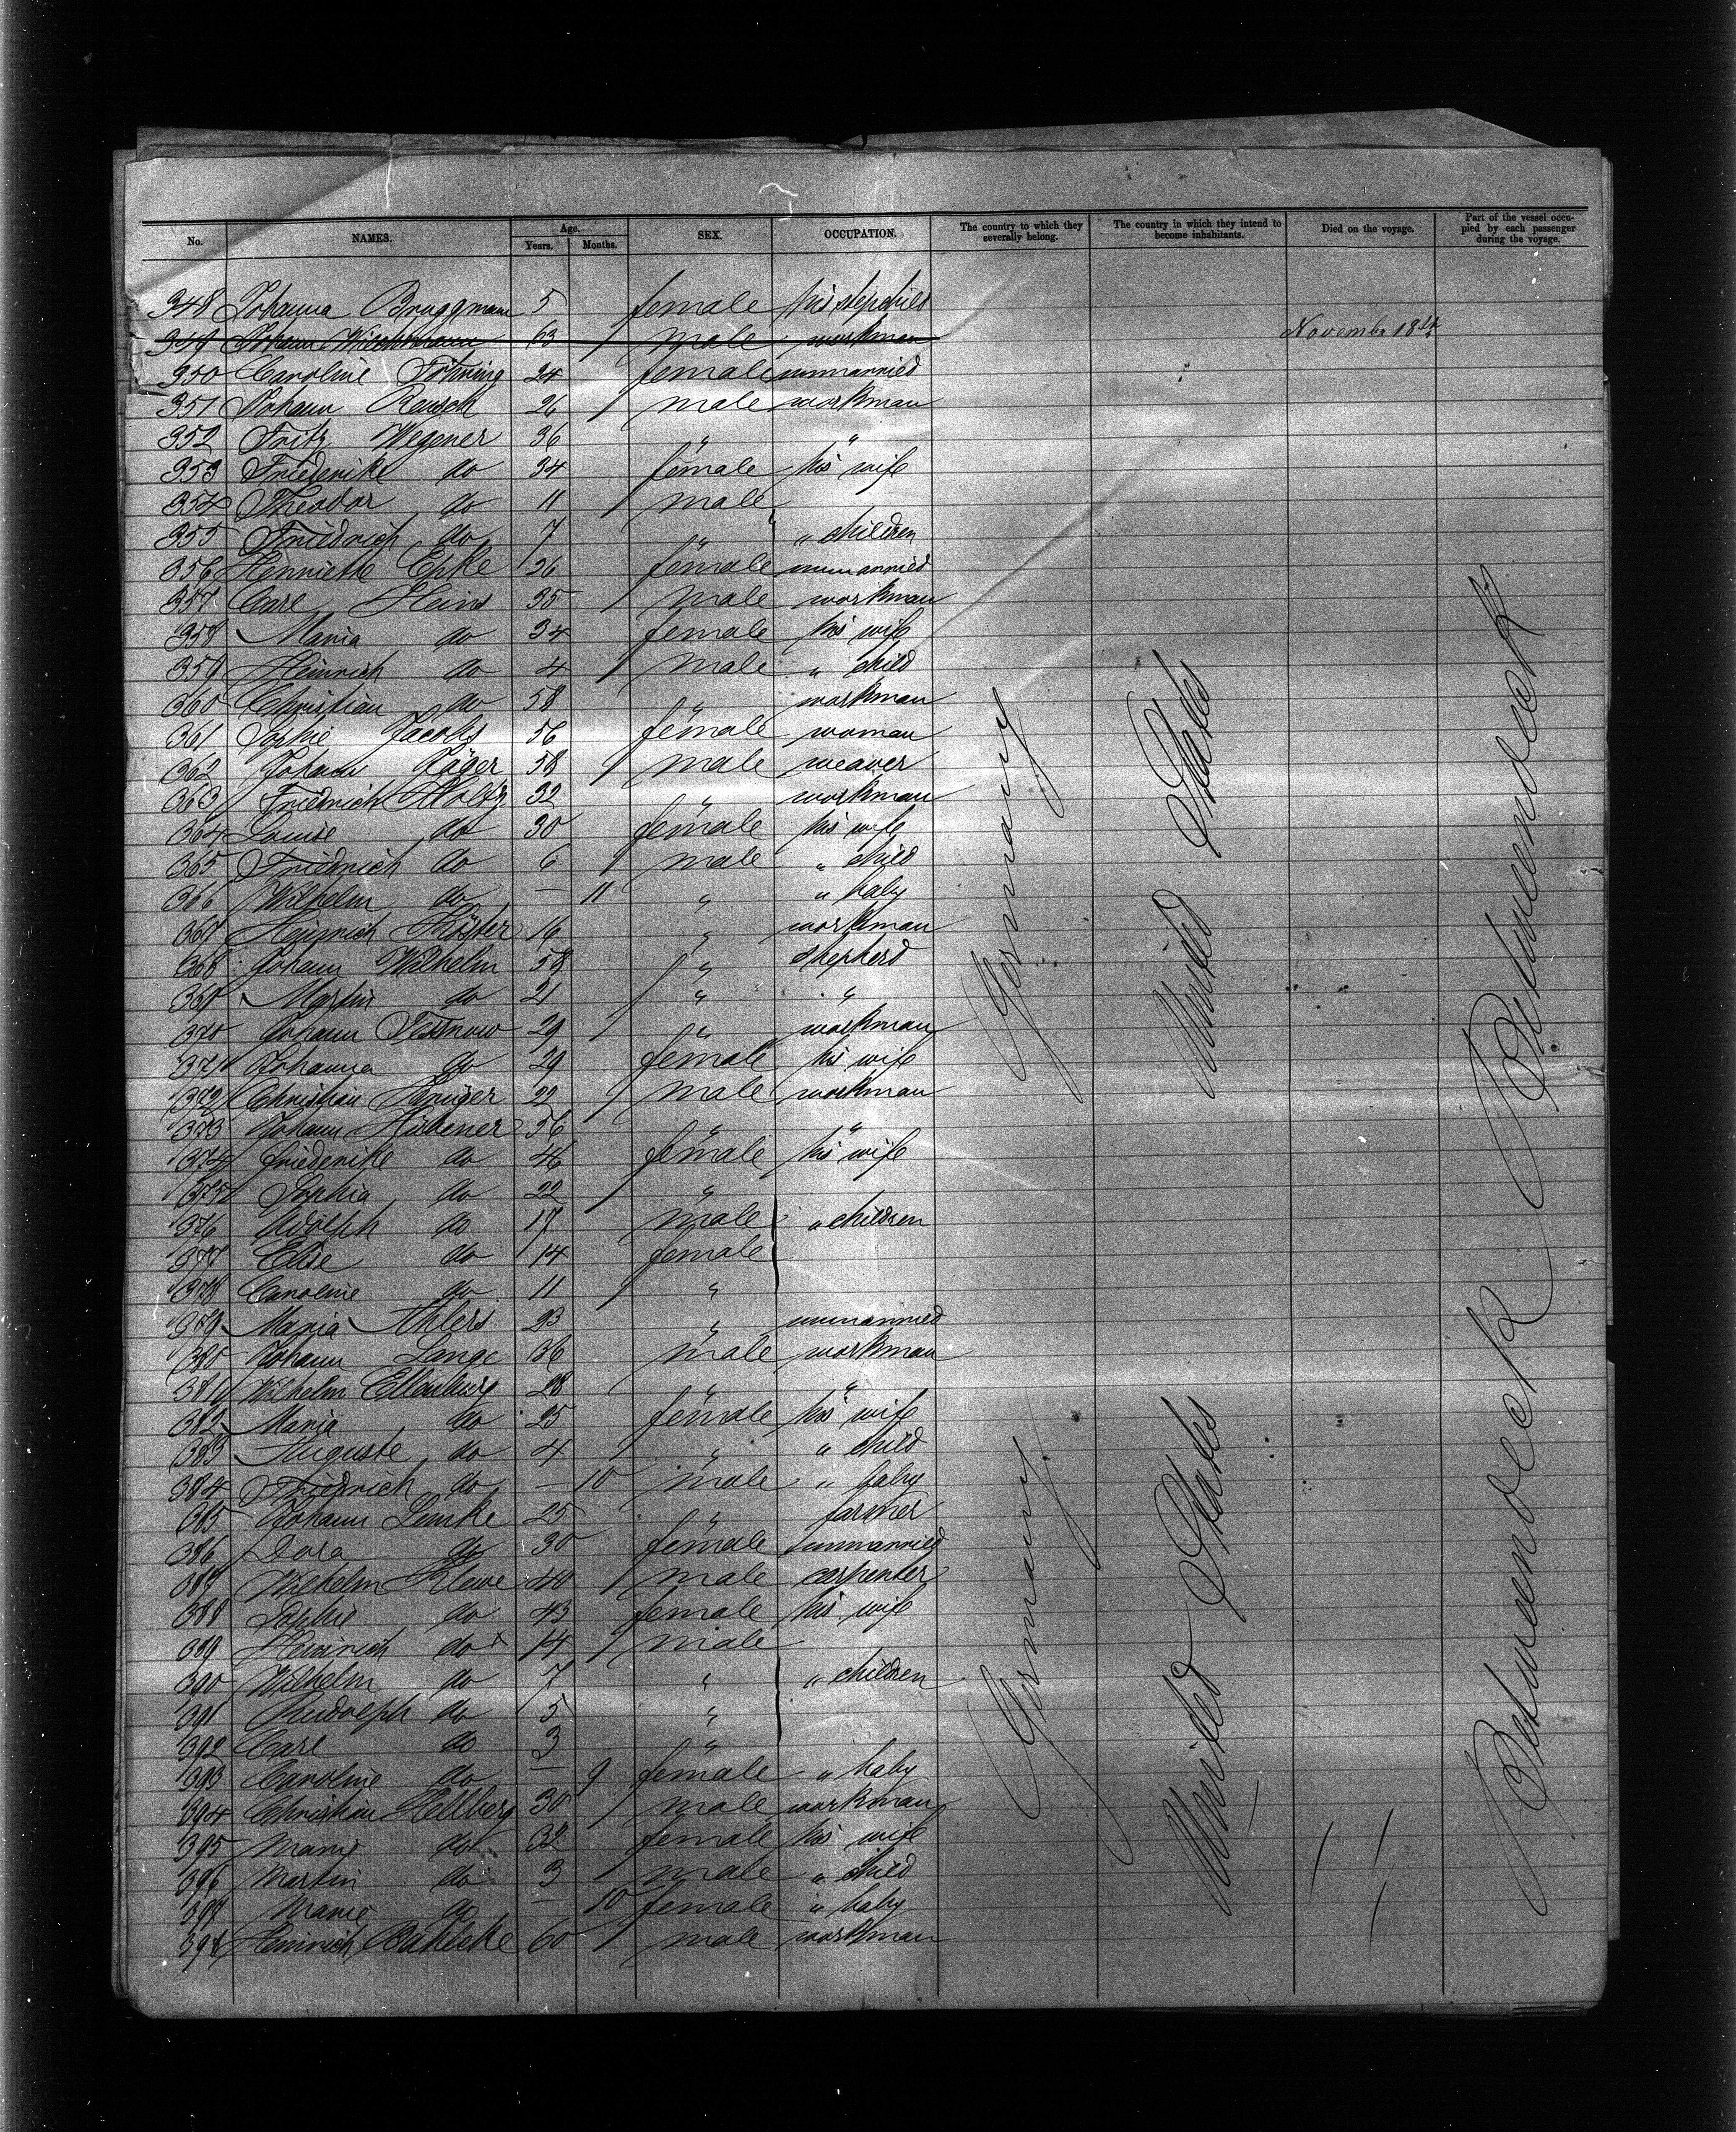 No. NAMES. Age. Years. Months. SEX. OCCUPATION. The country to which they severally belong. The country in which they intend to become inhabitants. Died on the voyage. Part of the vessel occupied by each passenger during the voyage.
348 Johanna Bruggmann 5 female his stepchild
349 Johann Wiechmann 63 male workman November 18th
350 Caroline Föhring 24 female unmarried
351 Johann Reusch 26 male workman
352 Fritz Wegener 36 " "
353 Friederike do 34 female his wife
354 Theodor do 11 male
355 Friedrich do 7 " " children
356 Henriette Epke 26 female unmarried
357 Carl Heins 35 male workman
358 Maria do 34 female his wife
359 Heinrich do 4 male " child
360 Christian do 58 " workman
361 Sophie Jacobs 56 female woman
362 Johann Jäger 58 male weaver
363 Friedrich Holtz 32 " workman
364 Louise do 30 female his wife
365 Friedrich do 6 male " child
366 Wilhelm do — 11 " " baby
367 Heinrich Köster 16 " workman
368 Johann Wilhelm 58 " shepherd
369 Martin do 21 " "
370 Johann Tessnow 29 " workman
371 Johanna do 29 female his wife
372 Christian Krüger 22 male workman
373 Johann Hübener 56 " "
374 Friederike do 46 female his wife
375 Sophia do 22 "
376 Adolph do 17 male " children
377 Elise do 14 female
378 Caroline do 11 "
379 Maria Ahlers 23 " unmarried
380 Johann Lange 36 male workman
381 Wilhelm Ellenburg 28 " "
382 Maria do 25 female his wife
383 Auguste do 4 " " child
384 Friedrich do — 10 male " baby
385 Johann Lemke 25 " farmer
386 Dora do 30 female unmarried
387 Wilhelm Klewe 40 male carpenter
388 Sophie do 43 female his wife
389 Heinrich do 14 male
390 Wilhelm do 7 " " children
391 Rudolph do 5 "
392 Carl do 3 "
393 Caroline do — 9 female " baby
394 Christian Hellberg 30 male workman
395 Marie do 32 female his wife
396 Martin do 3 male " child
397 Marie do — 10 female " baby
398 Heinrich Bahlcke 60 male workman
Germany
United States
Betweendeck
Germany
United States
Betweendeck